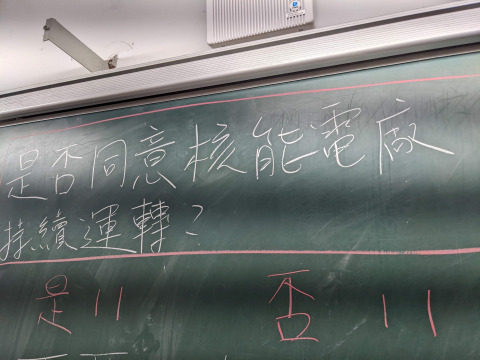 是否同意核能電廠
持續運轉？
是 || 否 ||